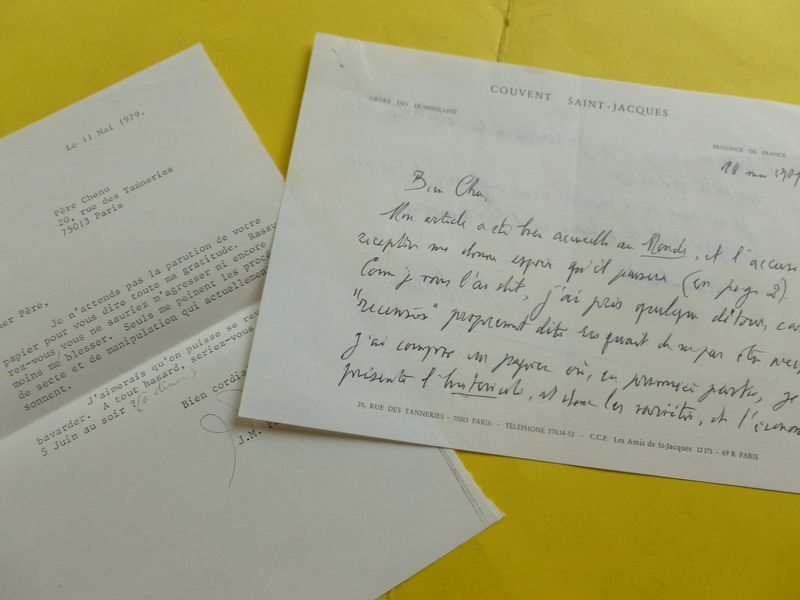 Le 11 Mai 1979.
Père Chenu
20, rue des Tanneries
75013 Paris
er Père,
Je n'attends pas la parution de votre
papier pour vous dire toute ma gratitude. Rassu
rez-vous, vous ne sauriez m'agresser ni encore
moins me blesser. Seuls me peinent les procé
de secte et de manipulation qui actuellement
sonnent.
J'aimerais qu'on puisse se rev
bavarder. A tout hasard, seriez-vous
5 Juin au soir ?
Bien cordia
J.M.
COUVENT SAINT-JACQUES
ORDRE DES DOMINICAINS
PROVINCE DE FRANCE
10 mai 1979
Bien Cher,
Mon article a été bien accueilli au Monde, et l'accusé
réception me donne espoir qu'il passera (en page 2).
Comme je vous l'ai dit, j'ai pris quelque détour, car
"recension" proprement dite risquait de ne pas être
j'ai composé un papier où, en première partie, je
présente l'historicité, et donc les et l'économ
20, RUE DES TANNERIES - 75013 PARIS - TÉLÉPHONE 570.14-52 - C.C.P. Les Amis de St-Jacques 12 171 - 69 R PARIS